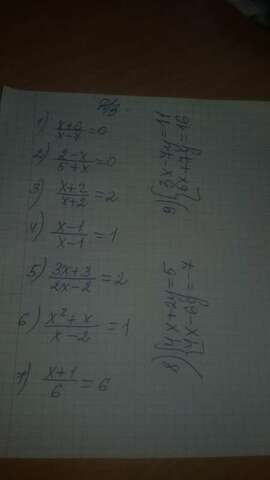 Д/З.
1) x+6/x-x=0
2) 2-x/5+x=0
3) x+2/x+2=2
4) x-1/x-1=1
5) 3x+3/2x-2=2
6) x²+x/x-2=1
7) x+1/6=6
8) {4x+2y=5
{4x-6y=7
9) {3x-7y=11
{6x+7y=16